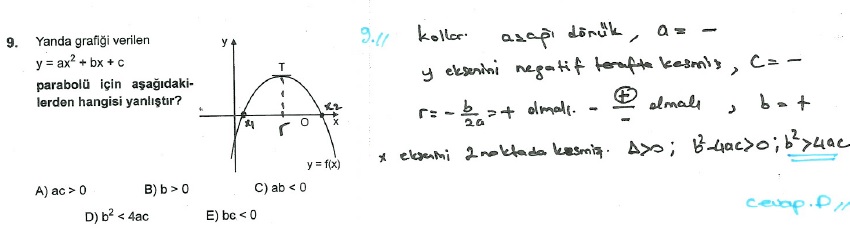 9. Yanda grafiği verilen
y = ax² + bx + c
parabolü için aşağıdaki-
lerden hangisi yanlıştır?
y
T
x1
r
O
x2
x
y = f(x)
A) ac > 0 B) b > 0 C) ab < 0
D) b² < 4ac E) bc < 0
9.// kollar aşağı dönük, a = -
y eksenini negatif tarafta kesmiş, c = -
r = - b/2a = + olmalı. - +/- olmalı, b = +
x eksenini 2 noktada kesmiş. Δ>0; b²-4ac>0; b²>4ac
cevap. D //